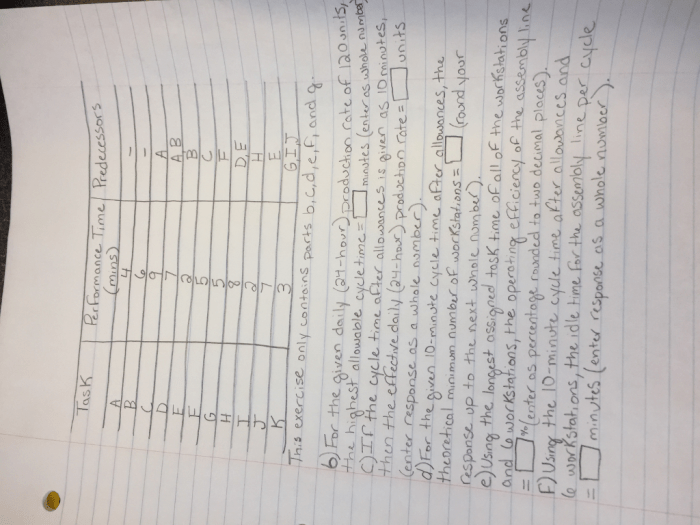 Task Performance Time (mins) Predecessors
A 4 -
B 6 -
C 9 A
D 7 A B
E 2 B
F 5 C
G 5 F
H 8 D,E
I 2 H
J 7 E
K 3 G,I,J
This exercise only contains parts b,c,d,e,f, and g.
b) For the given daily (24-hour) production rate of 120 units,
the highest allowable cycle time = minutes (enter as whole number)
c) If the cycle time after allowances is given as 10 minutes,
then the effective daily (24-hour) production rate = units
(enter response as a whole number).
d) For the given 10-minute cycle time after allowances, the
theoretical minimum number of workstations = (round your
response up to the next whole number).
e) Using the longest assigned task time of all of the workstations
and 6 workstations, the operating efficiency of the assembly line
= % (enter as percentage rounded to two decimal places).
F) Using the 10-minute cycle time after allowances and
6 workstations, the idle time for the assembly line per cycle
= minutes (enter response as a whole number).